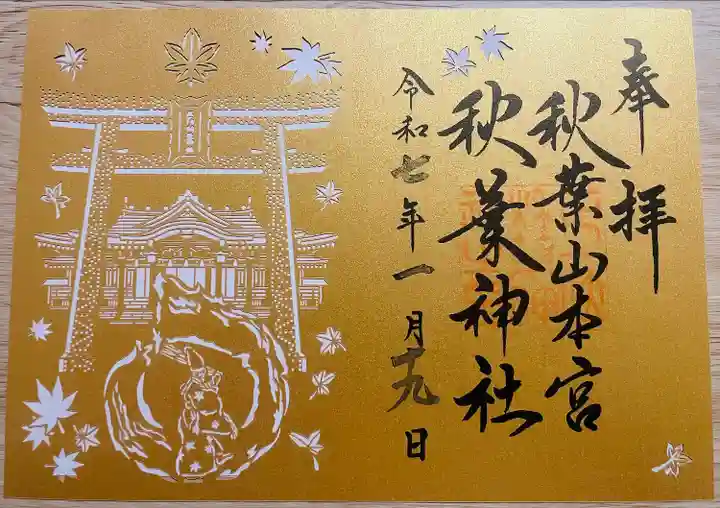 奉拝
秋葉山本宮
秋葉神社
令和七年一月十九日